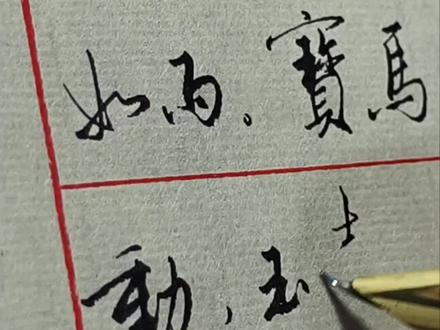 如雨。寶馬
動，玉士